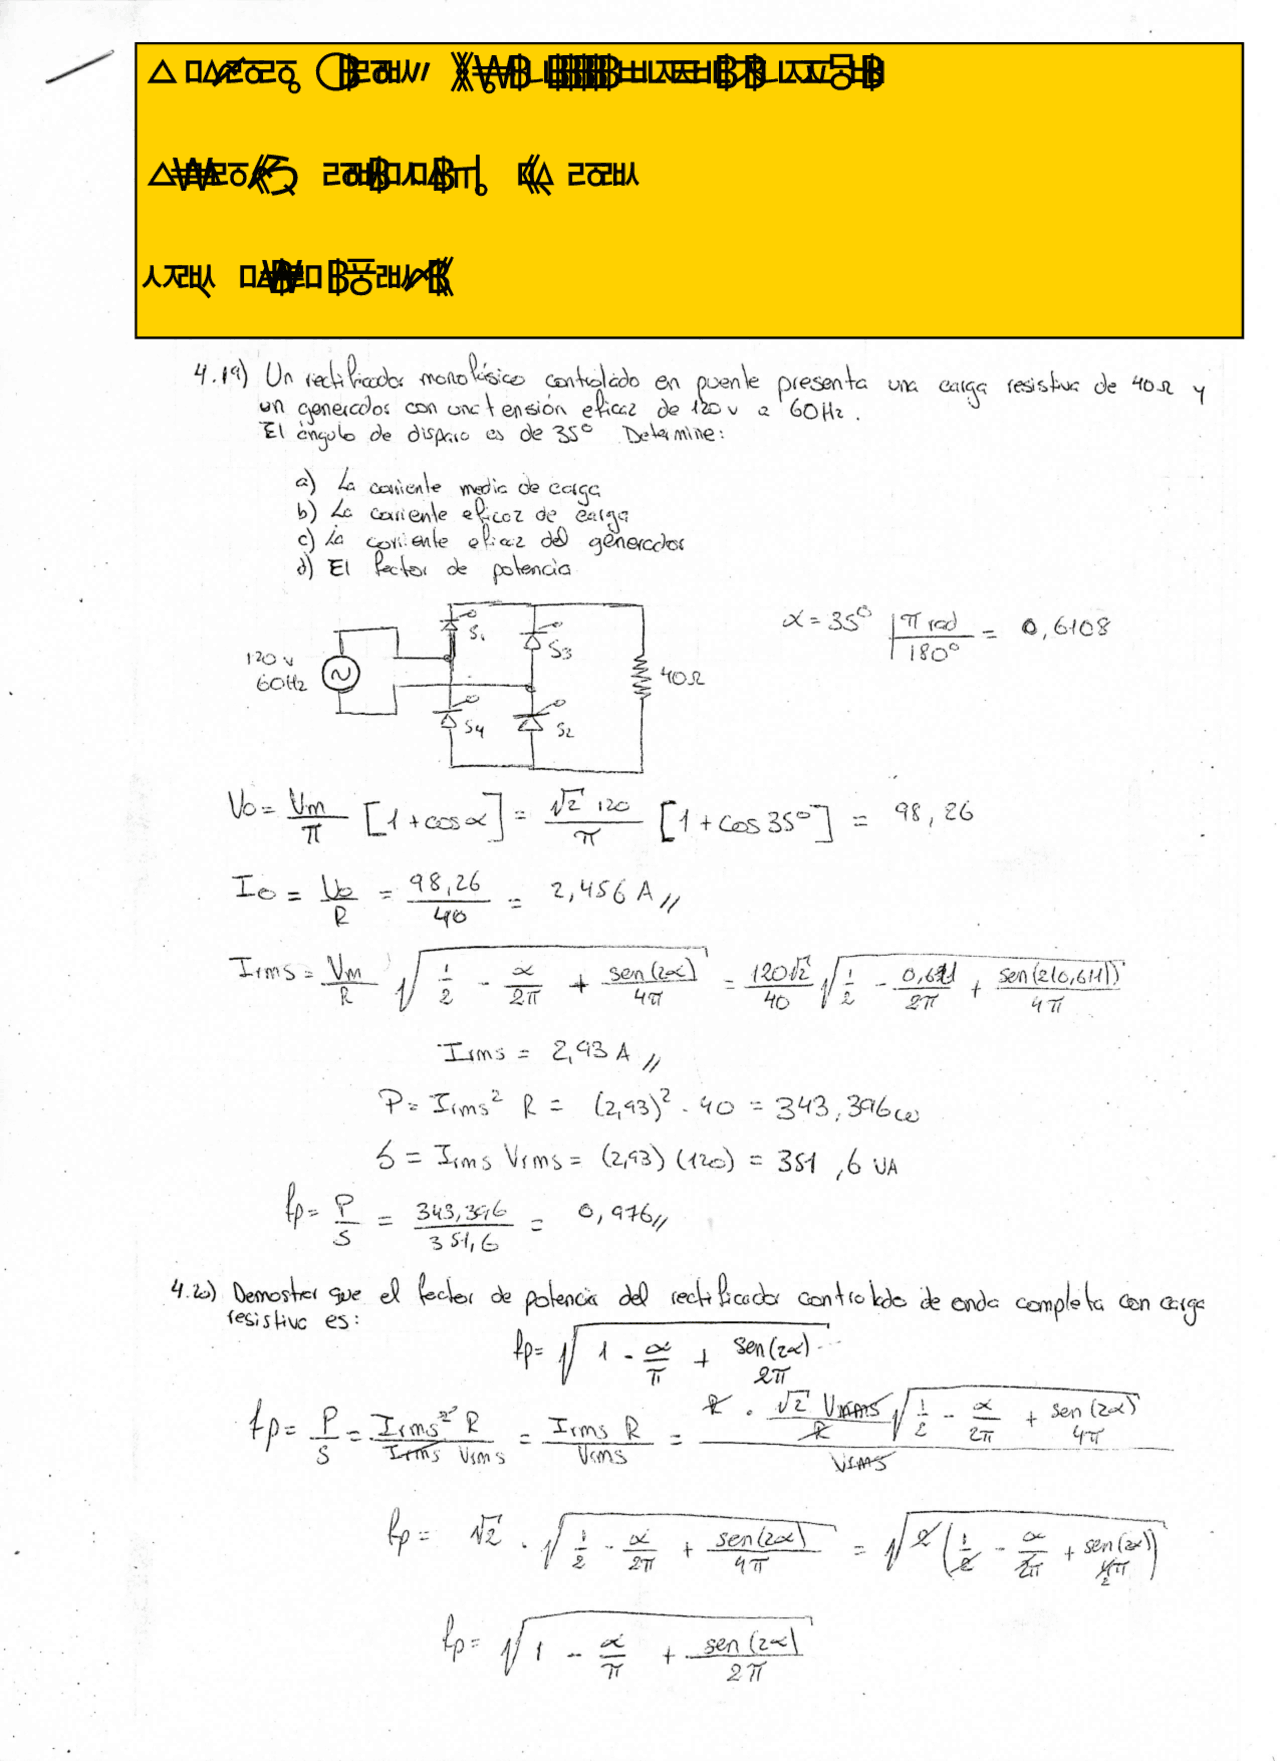 4.19) Un rectificador monofásico controlado en puente presenta una carga resistiva de 40Ω y
un generador con una tensión eficaz de 120v a 60Hz.
El ángulo de disparo es de 35° Determine:
a) La corriente media de carga
b) La corriente eficaz de carga
c) La corriente eficaz del generador
d) El factor de potencia
120 v
60Hz
S1
S3
S4
S2
40Ω
α = 35° | π rad / 180° = 0,6108
Vo = Vm/π [1 + cos α] = √2 120/π [1 + cos 35°] = 98,26
Io = Vo/R = 98,26/40 = 2,456 A //
Irms = Vm/R √(1/2 - α/2π + sen(2α)/4π) = 120√2/40 √(1/2 - 0,611/2π + sen(2(0,611))/4π)
Irms = 2,93 A //
P = Irms² R = (2,93)² · 40 = 343,396 w
S = Irms Vrms = (2,93) (120) = 351,6 VA
fp = P/S = 343,396/351,6 = 0,976 //
4.20) Demostrar que el factor de potencia del rectificador controlado de onda completa con carga
resistiva es:
fp = √(1 - α/π + sen(2α)/2π)
fp = P/S = Irms² R/Irms Vrms = Irms R/Vrms = R · √2 Vrms/R √(1/2 - α/2π + sen(2α)/4π) / Vrms
fp = √2 · √(1/2 - α/2π + sen(2α)/4π) = √(2 (1/2 - α/2π + sen(2α)/4π))
fp = √(1 - α/π + sen(2α)/2π)